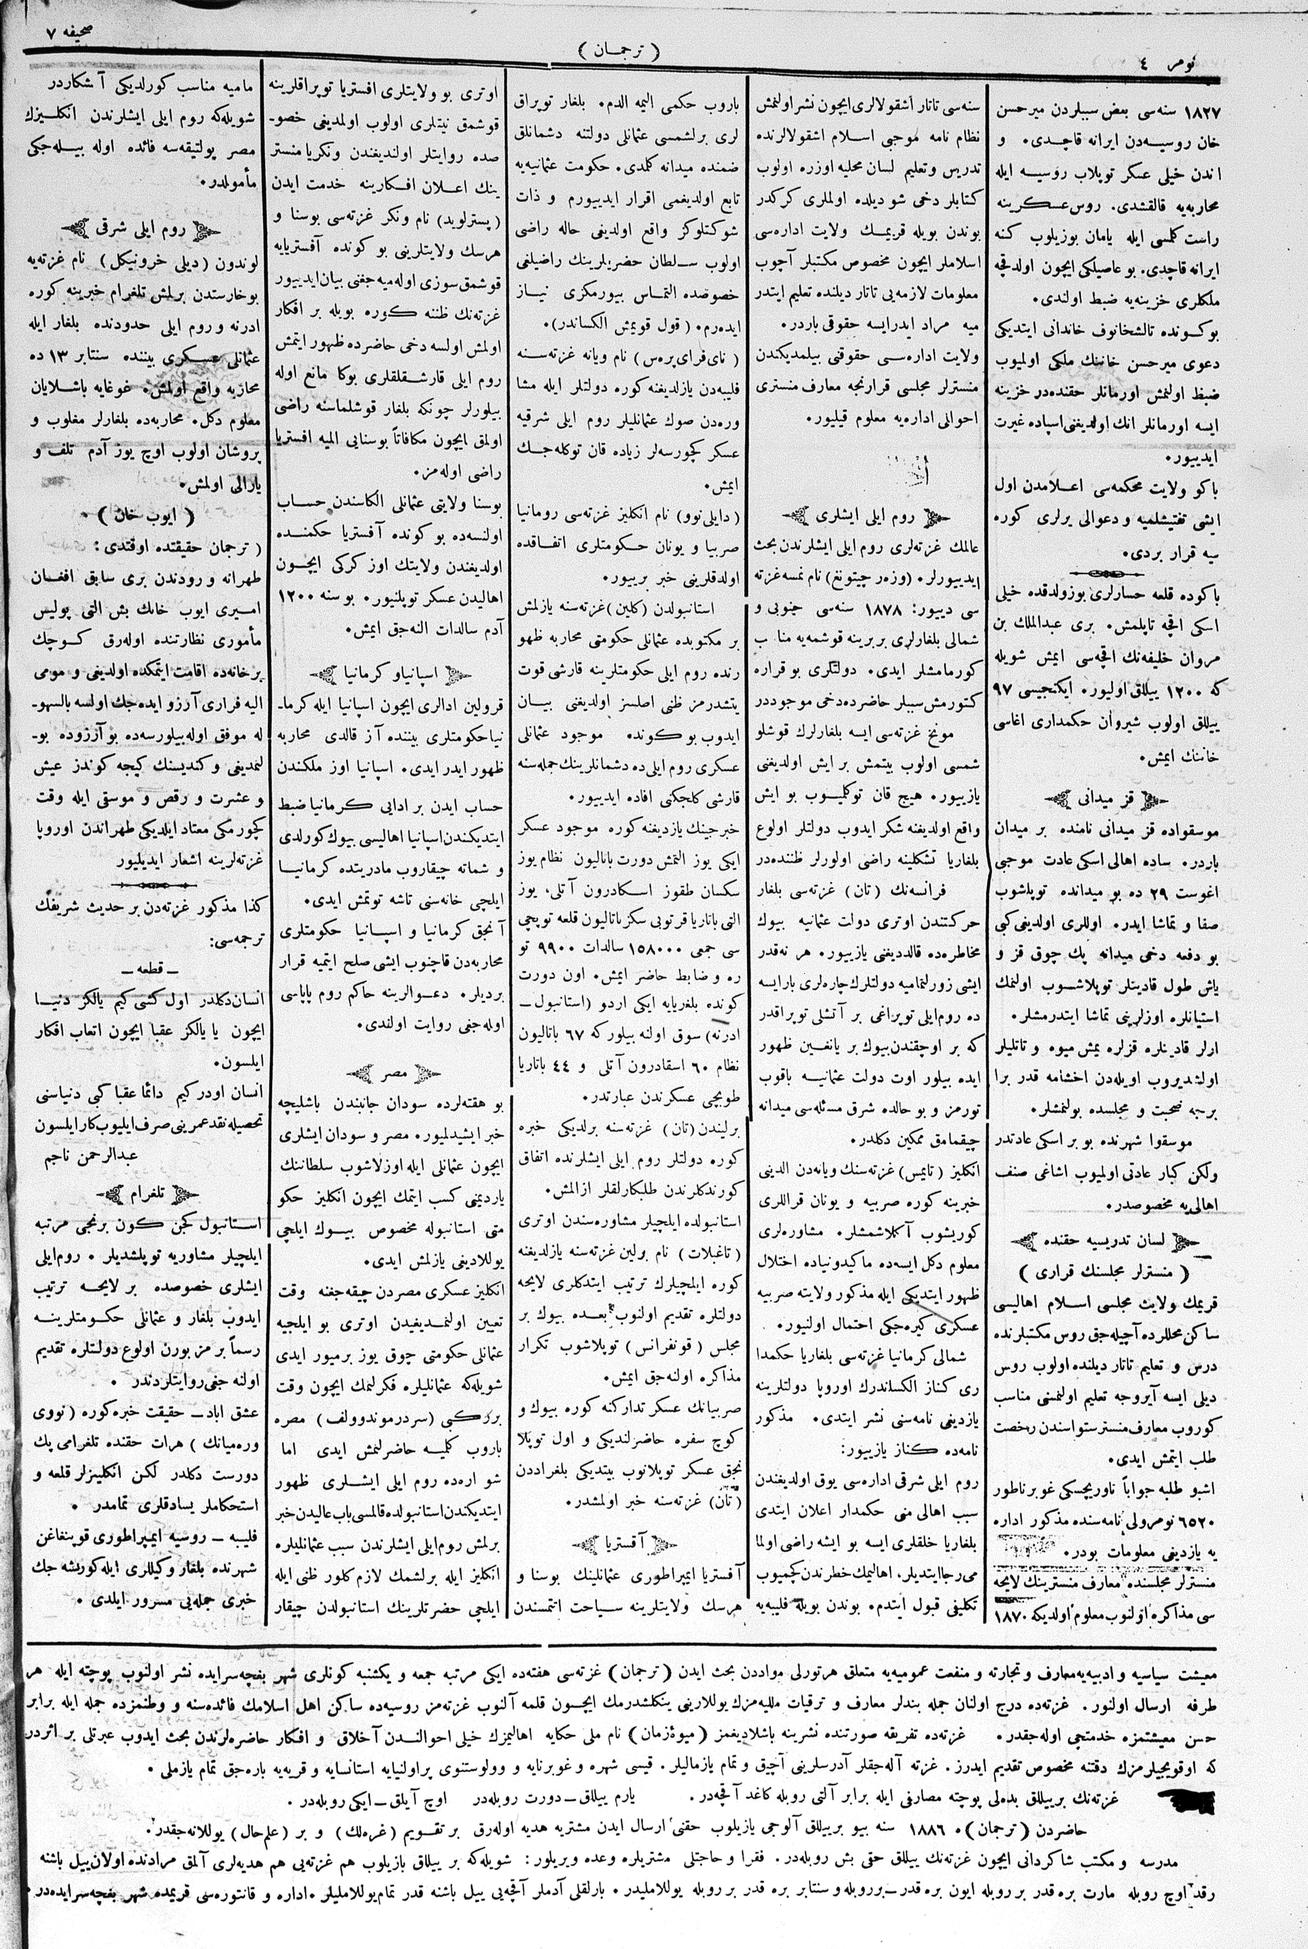 نومر ٤
( ترجمان )
صحیفه ٧
١٨٢٧ سنه‌سی بعض سببلردن میرحسن
خان روسیه‌دن ایرانه قاچدی. و
اندن خیلی عسکر توپلاب روسیه ایله
محاربه‌یه قالقشدی. روس عسکرینه
راست کلمسی ایله یامان بوزیلوب کنه
ایرانه قاچدی. بو عاصیلکی ایچون اولدقچه
ملکلری خزینه‌یه ضبط اولندی.
بوکونده تالشخانوف خاندانی ایتدیکی
دعوی میرحسن خاننك ملکی اولیوب
ضبط اولنمش اورمانلر حقنده‌در خزینه
ایسه اورمانلر انك اولدیغنی اسپاده غیرت
ایدییور.
باکو ولایت محکمه‌سی اعلامدن اول
ایشی تفتیشلمیه و دعوالی یرلری کوره
یه قرار بردی.
باکوده قلعه حسارلری بوزولدقده خیلی
اسکی اقچه تاپلمش. بری عبدالملك بن
مروان خلیفه‌نك اقچه‌سی ایمش شویله
که ١٢٠٠ ییللق اولیور. ایکنجیسی ٩٧
ییللق اولوب شیروان حکمداری اغاسی
خاننك ایمش.
قز میدانی
موسقواده قز میدانی نامنده بر میدان
باردر. ساده اهالی اسکی عادت موجبی
اغوست ٢٩ ده بو میدانده توپلشوب
صفا و تماشا ایدر. اوللری اولدیغی کبی
بو دفعه دخی میدانه پك چوق قز و
یاش طول قادینلر توپلاشوب اولنمك
استیانلره اوزلرینی تماشا ایتدرمشلر.
ارلر قادینلره قزلره یمش میوه و تاتلیلر
اولشدیروب اویله‌دن اخشامه قدر برا
برجه صحبت و مجلسده بولنمشلر.
موسقوا شهرنده بو بر اسکی عادتدر
ولکن کبار عادتی اولمیوب اشاغی صنف
اهالی‌یه مخصوصدر.
لسان تدریسیه حقنده
( منسترلر مجلسنك قراری )
قریمك ولایت مجلسی اسلام اهالیسی
ساکن محللرده آچیله‌جق روس مکتبلرنده
درس و تعلیم تاتار دیلنده اولوب روس
دیلی ایسه آیروجه تعلیم اولنمسنی مناسب
کوروب معارف منسترستواسندن رخصت
طلب ایتمش ایدی.
اشبو طلبه جواباً تاوریچسکی غوبرناطور
٦٥٢٠ نومرولی نامه‌سنده مذکور اداره
یه یازدیغی معلومات بودر.
منسترلر مجلسنده معارف منسترینك لایحه
سی مذاکره اولنوب معلوم اولدیکه ١٨٧٠
سنه‌سی تاتار اشقولالری ایچون نشر اولنمش
نظام نامه موجبی اسلام اشقولالرنده
تدریس و تعلیم لسان محلیه اوزره اولوب
کتابلر دخی شو دیلده اولملری کرکدر
بوندن بویله قریمك ولایت اداره‌سی
اسلاملر ایچون مخصوص مکتبلر آچوب
معلومات لازمه‌یی تاتار دیلنده تعلیم ایتدر
میه مراد ایدرایسه حقوقی باردر.
ولایت اداره‌سی حقوقنی بیلمدیکندن
منسترلر مجلسی قرارنجه معارف منستری
احوالی اداره‌یه معلوم قیلیور.
روم ایلی ایشلری
عالمك غزته‌لری روم ایلی ایشلرندن بحث
ایدییورلر. (وزه‌ر چیتونغ) نام نمسه غزته
سی دییور: ١٨٧٨ سنه‌سی جنوبی و
شمالی بلغارلری بربرینه قوشمه‌یه مناسب
کورمامشلر ایدی. دولتلری بو قراره
کتورمش سببلر حاضرده دخی موجوددر
مونخ غزته‌سی ایسه بلغارلرك قوشلو
شمسی اولوب بیتمش بر ایش اولدیغنی
یازییور. هیچ قان توکلمیوب بو ایش
واقع اولدیغنه شکر ایدوب دولتلر اولوع
بلغاریا تشکلینه راضی اولورلر ظننده‌در
فرانسه‌نك (تان) غزته‌سی بلغار
حرکتندن اوتری دولت عثمانیه بیوك
مخاطره‌ده قالدیغنی یازییور. هر نه‌قدر
ایشی زورلتمامیه دولتلرك چاره‌لری بارایسه
ده روم‌ایلی توپراغی بر آتشلی توپراقدر
که بر اوچقندن بیوك بر یانغین ظهور
ایده بیلور اوت دولت عثمانیه باقوب
تورمز و بو حالده شرق مسئله‌سی میدانه
چیقمامق ممکین دکلدر.
انکلیز (تایمس) غزته‌سنك ویانه‌دن الدینی
خبرینه کوره صربیه و یونان قراللری
کوریشوب آکلاشمشلر. مشاوره‌لری
معلوم دکل ایسه‌ده ماکیدونیاده اختلال
ظهور ایتدیکی ایله مذکور ولایته صربیه
عسکری کیره‌جکی احتمال اولنیور.
شمالی کرمانیا غزته‌سی بلغاریا حکمدا
ری کناز الکساندرك اوروپا دولتلرینه
یازدیغی نامه‌سنی نشر ایتدی. مذکور
نامه‌ده کناز یازییور:
روم ایلی شرقی اداره‌سی یوق اولدیغندن
سبب اهالی منی حکمدار اعلان ایتدی
بلغاریا خلقلری ایسه بو ایشه راضی اولما
می رجا ایتدیلر. اهالینك خطرندن کچمیوب
تکلیفی قبول ایتدم. بوندن بویله فلیبه‌یه
باروب حکمی الیمه الدم. بلغار توپراق
لری برلشمسی عثمانلی دولتنه دشمانلق
ضمنده میدانه کلمدی. حکومت عثمانیه‌یه
تابع اولدیغمی اقرار ایدییورم و ذات
شوکتلوکز واقع اولدیغی حاله راضی
اولوب سلطان حضرتلرینك راضیلغی
خصوصده التماس بیورمکزی نیاز
ایده‌رم. (قول قویمش الکساندر).
(نای فرای پره‌س) نام ویانه غزته‌سنه
فلیبه‌دن یازلدیغنه کوره دولتلر ایله مشا
وره‌دن صوك عثمانلیلر روم ایلی شرقیه
عسکر کچورسه‌لر زیاده قان توکله‌جك
ایمش.
(دایلی نوو) نام انکلیز غزته‌سی رومانیا
صربیا و یونان حکومتلری اتفاقده
اولدقلرینی خبر بریور.
استانبولدن (کلین) غزته‌سنه یازلمش
بر مکتوبده عثمانلی حکومتی محاربه ظهو
رنده روم ایلی حکومتلرینه قارشی قوت
یتشدرمز ظنی اصلسز اولدیغنی بیان
ایدوب بو کونده موجود عثمانلی
عسکری روم ایلی‌ده دشمانلرینك جمله‌سنه
قارشی کلجکنی افاده ایدییور.
خبرجینك یازدیغنه کوره موجود عسکر
ایکی یوز التمش دورت باتالیون نظام یوز
سکسان طقوز اسکادرون آتلی، یوز
التی باتاریا قرتوبی سکز باتالیون قلعه توپچی
سی جمعی ١٥٨٠٠٠ سالدات ٩٩٠٠ تو
ره و ضابط حاضر ایمش. اون دورت
کونده بلغریایه ایکی اردو (استانبول ـ
ادرنه) سوق اولنه بیلور که ٦٧ باتالیون
نظام ٦٠ اسقادرون آتلی و ٤٤ باتاریا
طوبجی عسکرندن عبارتدر.
برلیندن (تان) غزته‌سنه برلدیکی خبره
کوره دولتلر روم ایلی ایشلرنده اتفاق
کورندکلرندن طلبکارلقلر ازالمش.
استانبولده ایلچیلر مشاوره‌سندن اوتری
(تاغبلات) نام برلین غزته‌سنه یازلدیغنه
کوره ایلچیلرك ترتیب ایتدکلری لایحه
دولتلره تقدیم اولنوب بعده بیوك بر
مجلس (قونفرانس) توپلاشوب تکرار
مذاکره اولنه‌جق ایمش.
صربیانك عسکر تدارکنه کوره بیوك و
کوچ سفره حاضرلندیکی و اول توپلا
نجق عسکر توپلانوب بیتدیکی بلغراددن
(تان) غزته‌سنه خبر اولمشدر.
آقستریا
آفستریا ایمپراطوری عثمانلینك بوسنا و
هرسك ولایتلرینه سیاحت ایتمسندن
اوتری بو ولایتلری افستریا توپراقلرینه
قوشمق نیتلری اولوب اولمدیغی خصو-
صده روایتلر اولندیغندن ونکریا منستر
ینك اعلان افکارینه خدمت ایدن
(پسترلوید) نام ونکر غزته‌سی بوسنا و
هرسك ولایتلرینی بو کونده آفستریایه
قوشمق سوزی اوله‌میه‌جغنی بیان ایدییور
غزته‌نك ظننه کوره بویله بر افکار
اولمش اولسه دخی حاضرده ظهور ایتمش
روم ایلی قارشقلقلری بوکا مانع اوله
بیلورلر چونکه بلغار قوشلماسنه راضی
اولمق ایچون مکافاتاً بوسنایی المیه افستریا
راضی اوله‌مز.
بوسنا ولایتی عثمانلی الکاسندن حساب
اولنسه‌ده بو کونده آفستریا حکمنده
اولدیغندن ولایتك اوز کرکی ایچون
اهالیدن عسکر توپلنیور. بو سنه ١٢٠٠
آدم سالدات النه‌جق ایمش.
اسپانیا و کرمانیا
قرولین ادالری ایچون اسپانیا ایله کرما-
نیا حکومتلری بیننده آز قالدی محاربه
ظهور ایدر ایدی. اسپانیا اوز ملکندن
حساب ایدن بر ادایی کرمانیا ضبط
ایتدیکندن اسپانیا اهالیسی بیوك کورلدی
و شماته چیقاروب مادریتده کرمانیا
ایلچی خانه‌سنی تاشه توتمش ایدی.
آنجق کرمانیا و اسپانیا حکومتلری
محاربه‌دن قاچنوب ایشی صلح ایتمیه قرار
بردیلر. دعوالرینه حاکم روم پاپاسی
اوله‌جغی روایت اولندی.
مصر
بو هفته‌لرده سودان جانبندن باشلیچه
خبر ایشیدلمیور. مصر و سودان ایشلری
ایچون عثمانلی ایله اوزلاشوب سلطاننك
یاردیمنی کسب ایتمك ایچون انکلیز حکو
متی استانبوله مخصوص بیوك ایلچی
یوللادیغی یازلمش ایدی.
انکلیز عسکری مصردن چیقه‌جغنه وقت
تعیین اولنمدیغیدن اوتری بو ایلجیه
عثمانلی حکومتی چوق یوز برمیور ایدی
شویله‌که عثمانلیلره فکرلنمك ایچون وقت
بررکی (سردرموندوولف) مصره
باروب کلمیه حاضرلنمش ایدی اما
شو اره‌ده روم ایلی ایشلری ظهور
ایتدیکندن استانبولده قالمسی باب عالیدن خبر
برلمش روم‌ایلی ایشلرندن سبب عثمانلیلر.
انکلیز ایله برلشمك لازم کلور ظنی ایله
ایلچی حضرتلرینك استانبولدن چیقار
مامیه مناسب کورلدیکی آشکاردر
شویله‌که روم ایلی ایشلرندن انکلیزك
مصر پولتیقه‌سه فائده اوله بیله‌جکی
مأمولدر.
روم ایلی شرقی
لوندون (دیلی خرونیکل) نام غزته‌یه
بوخارستدن برلمش تلغرام خبرینه کوره
ادرنه و روم ایلی حدودنده بلغار ایله
عثمانلی عسکری بیننده سنتابر ١٣ ده
محاربه واقع اولمش. غوغایه باشلایان
معلوم دکل. محاربه‌ده بلغارلر مغلوب و
پروشان اولوب اوچ یوز آدم تلف و
یارالی اولمش.
( ایوب خان ) .
( ترجمان حقیقتده اوقتدی :
طهرانه و روددن بری سابق افغان
امیری ایوب خانك بش التی پولیس
مأموری نظارتنده اوله‌رق کوچك
بر خانه‌ده اقامت ایتمکده اولدیغی و مومی
الیه فراری آرزو ایده‌جك اولسه بالسهو-
له موفق اوله‌بیلورسه‌ده بو آرزوده بو-
لنمدیغی و کندیسنك کیجه کوندز عیش
و عشرت و رقص و موسقی ایله وقت
کچورمکی معتاد ایلدیکی طهراندن اوروپا
غزته‌لرینه اشعار ایدیلیور
کذا مذکور غزته‌دن بر حدیث شریفك
ترجمه‌سی:
ـ قطعه ـ
انسان دکلدر اول کشی کیم یالکز دنیا
ایچون یا یالکز عقبا ایچون اتعاب افکار
ایلسون.
انسان اودر کیم دائما عقبا کبی دنیاسنی
تحصیله نقد عمرینی صرف ایلیوب کار ایلسون
عبدالرحمن ناجم
تلغرام
استانبول کچن کون برنجی مرتبه
ایلچیلر مشاوریه توپلشدیلر . روم‌ایلی
ایشلری خصوصده بر لایحه ترتیب
ایدوب بلغار و عثمانلی حکومتلرینه
رسماً برمز بورن اولوع دولتلره تقدیم
اولنه جغی روایتلردندر .
عشق اباد ـ حقیقت خبره کوره (نووی
وره‌میانك) هرات حقنده تلغرامی پك
دورست دکلدر لکن انکلیزلر قلعه و
استحکاملر یسادقلری تمامدر .
فلیبه ـ روسیه ایمپراطوری قوپنغاغن
شهرنده بلغار وکیللری ایله کوریشه‌جك
خبری جمله‌یی مسرور ایلدی .
معیشت سیاسیه و ادبیه‌یه معارف و تجارته و منفعت عمومیه‌یه متعلق هر تورلی موادن بحث ایدن (ترجمان) غزته‌سی هفته‌ده ایکی مرتبه جمعه و یکشنبه کونلری شهر بغچه‌سرایده نشر اولنوب پوچته ایله هر
طرفه ارسال اولنور. غزته‌ده درج اولنان جمله بندلر معارف و ترقیات ملیه‌مزك یوللارینی ینکلشدرمك ایچون قلمه آلنوب غزته‌مز روسیه‌ده ساکن اهل اسلامك فائده‌سنه و وطنمزده جمله ایله برابر
حسن معیشتمزه خدمتجی اوله‌جقدر. غزته‌ده تفریقه صورتنده نشرینه باشلادیغمز (میوثرمان) نام ملی حکایه اهالیمزك خیلی احوالندن آخلاق و افکار حاضره‌لرندن بحث ایدوب عبرتلی بر اثردر
که اوقویجیلرمزك دقتنه مخصوص تقدیم ایدرز. غزته آله‌جقلر آدرسلرینی آچیق و تمام یازمالیلر. قیسی شهره و غوبرنایه و وولوستنوی پراولنیایه استانسایه و قریه‌یه باره‌جق تمام یازملی .
غزته‌نك بر ییللق بده‌لی پوچته مصارفی ایله برابر آلتی روبله کاغد آقچه‌در. یارم ییللق ـ دورت روبله‌در اوچ آیلق ـ ایکی روبله‌در .
حاضردن (ترجمان). ١٨٨٦ سنه بیو بر ییللق آلوجی یازیلوب حقنی ارسال ایدن مشتریه هدیه اوله‌رق بر تقویم (غره‌لك) و بر (علم حال) یوللانه‌جقدر.
مدرسه و مکتب شاکردانی ایچون غزته‌نك ییللق حقی بش روبله‌در. فقرا و حاجتلی مشتریلره وعده ویریلور: شویله‌که بر ییللق یازیلوب هم غزته‌یی هم هدیه‌لری آلمق مرادنده اولان ییل باشنه
رقد اوچ روبله مارت بره قدر بر روبله ایون بره قدر ـ بر روبله و سنتابر بره قدر بر روبله یوللاملیدر. بارلقلی آدملر آقچه‌یی ییل باشنه قدر تمام یوللاملیلر. اداره و قانتوره‌سی قریمده شهر بغچه سرایده‌در.